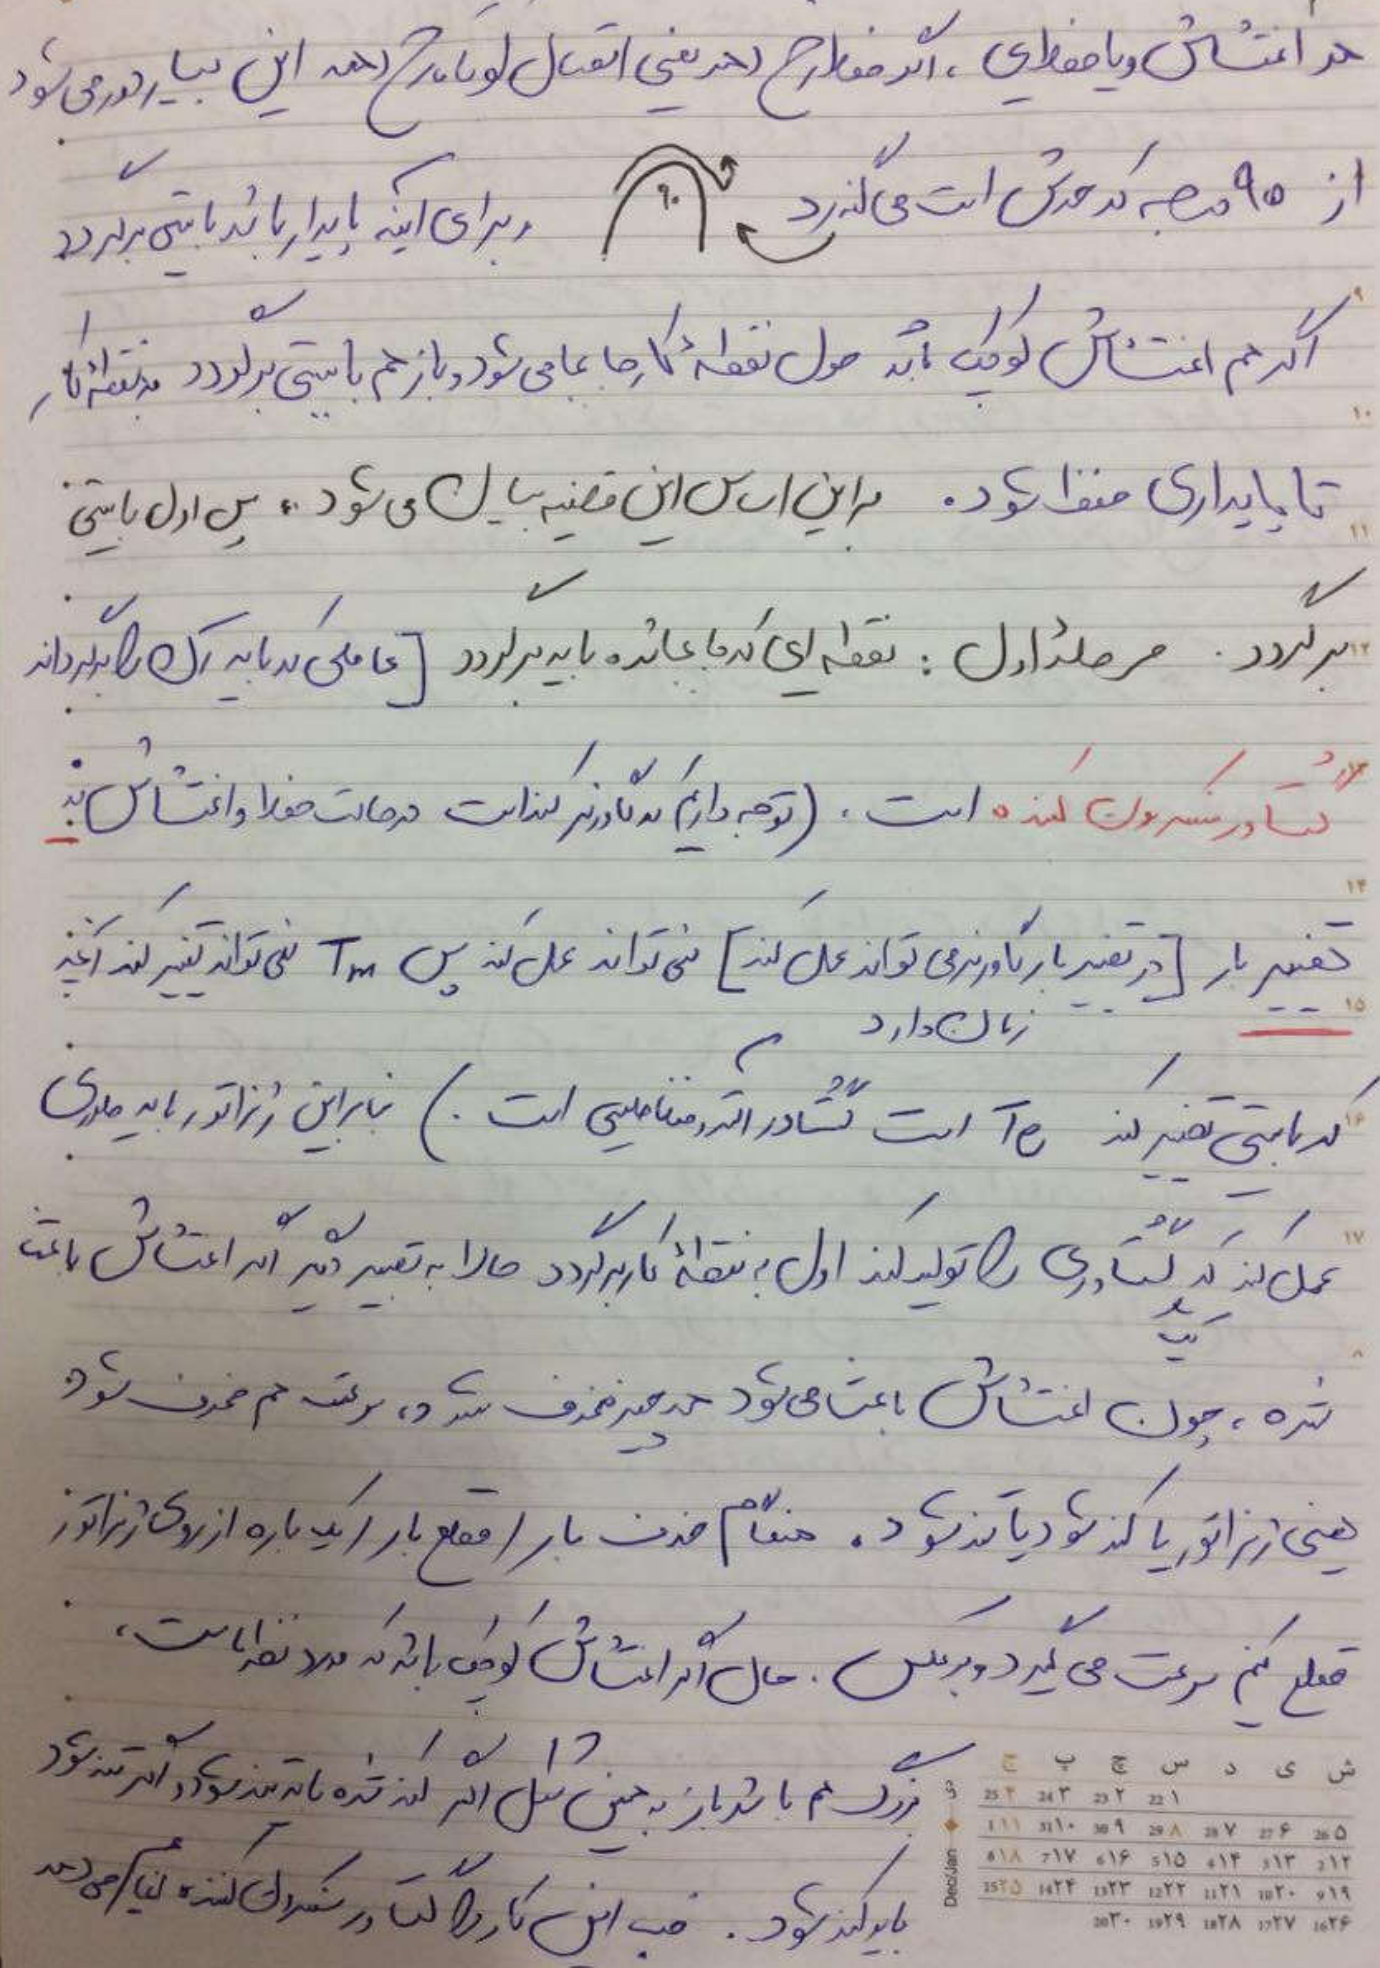 هر اغتشاش و یا خطایی، اگر خطا رخ دهد یعنی اتصال کوتاه رخ دهد این بسیار دور می شود
از ۹۰ درجه که حدش است می گذرد ۹۰ و برای اینکه پایدار باشد بایستی برگردد
اگر هم اغتشاش کوچک باشد حول نقطۀ کار جا بجا می شود و باز هم بایستی برگردد به نقطۀ کار
تا پایداری حفظ شود. بر این اساس این قضیه بیان می شود، پس اول بایستی
برگردد. مرحلۀ اول: نقطه ای که جا بجا شده باید برگردد [عاملی که باید آن را برگرداند
گشتاور سنکرون کننده است. (توجه داریم که گاورنر کند است در حالت خطا و اغتشاش نه
تغییر بار [در تغییر بار گاورنر می تواند عمل کند] نمی تواند عمل کند پس Tm نمی تواند تغییر کند آنچه
زمان دارد
که بایستی تغییر کند Te است گشتاور الکترومغناطیسی است.) بنابراین ژنراتور باید طوری
عمل کند که گشتاوری را تولید کند اول به نقطۀ کار برگردد حالا به تعبیر دیگر اگر اغتشاش باعث
یک
شده، چون اغتشاش باعث می شود هر چیز منحرف شود، سرعت هم منحرف شود
یعنی ژنراتور یا کند شود یا تند شود. هنگام حذف بار / قطع بار / یک باره از روی ژنراتور
قطع کنیم سرعت می گیرد و برعکس. حال اگر اغتشاش کوچک باشد که مورد نظر ماست،
بزرگ هم باشد باز به همین شکل اگر کند شده باید تند شود و اگر تند شود
باید کند شود. خب این کار را گشتاور سنکرون کننده انجام می دهد
ش ی د س چ پ ج
۱ 22 ۲ 23 ۳ 24 ۴ 25
۵ 26 ۶ 27 ۷ 28 ۸ 29 ۹ 30 ۱۰ 31 ۱۱ 1
۱۲ 2 ۱۳ 3 ۱۴ 4 ۱۵ 5 ۱۶ 6 ۱۷ 7 ۱۸ 8
۱۹ 9 ۲۰ 10 ۲۱ 11 ۲۲ 12 ۲۳ 13 ۲۴ 14 ۲۵ 15
۲۶ 16 ۲۷ 17 ۲۸ 18 ۲۹ 19 ۳۰ 20
دی Dec/Jan
۹
۱۰
۱۱
۱۲
۱۳
۱۴
۱۵
۱۶
۱۷